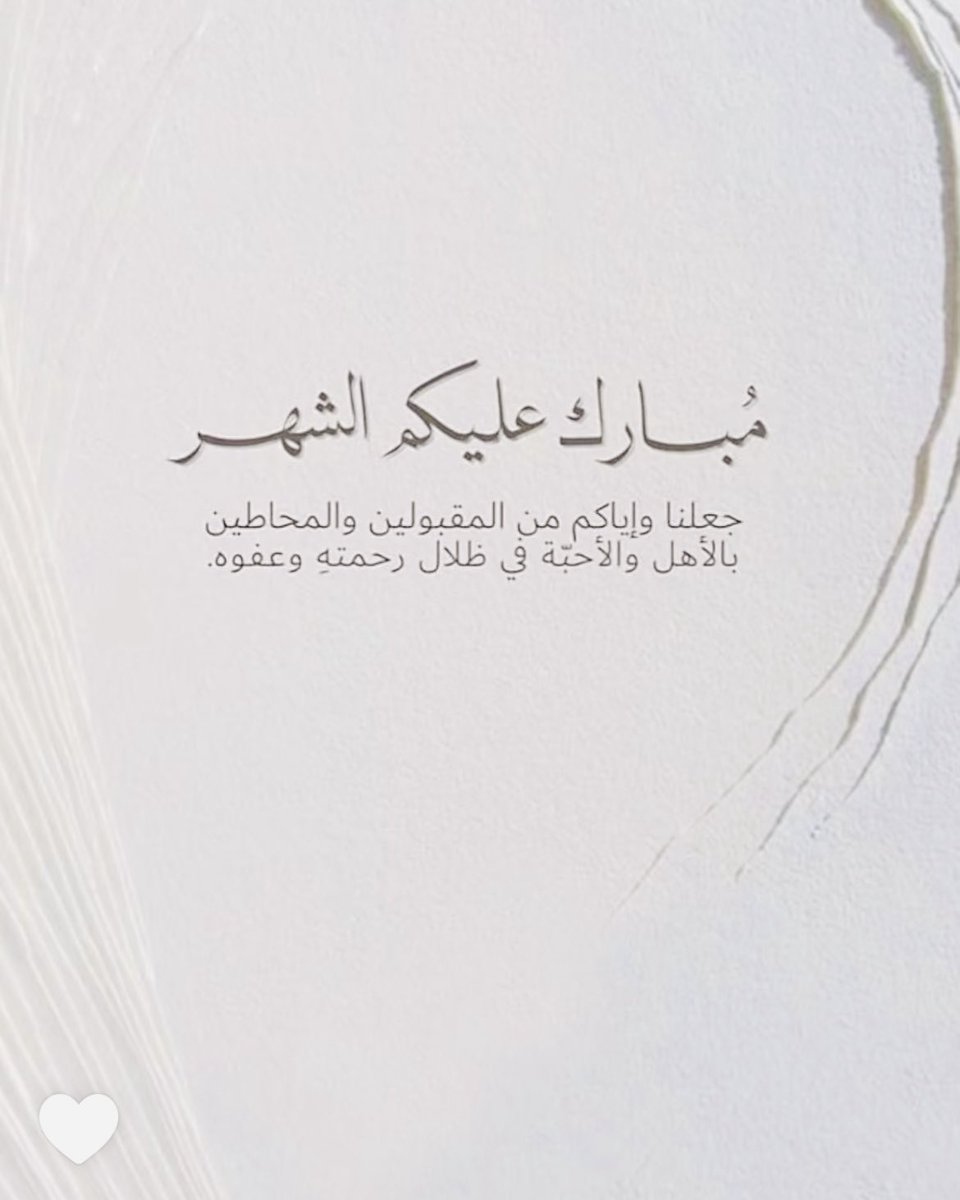 مُبارك عليكم الشهر
جعلنا وإياكم من المقبولين والمحاطين
بالأهل والأحبّة في ظلال رحمتهِ وعفوه.